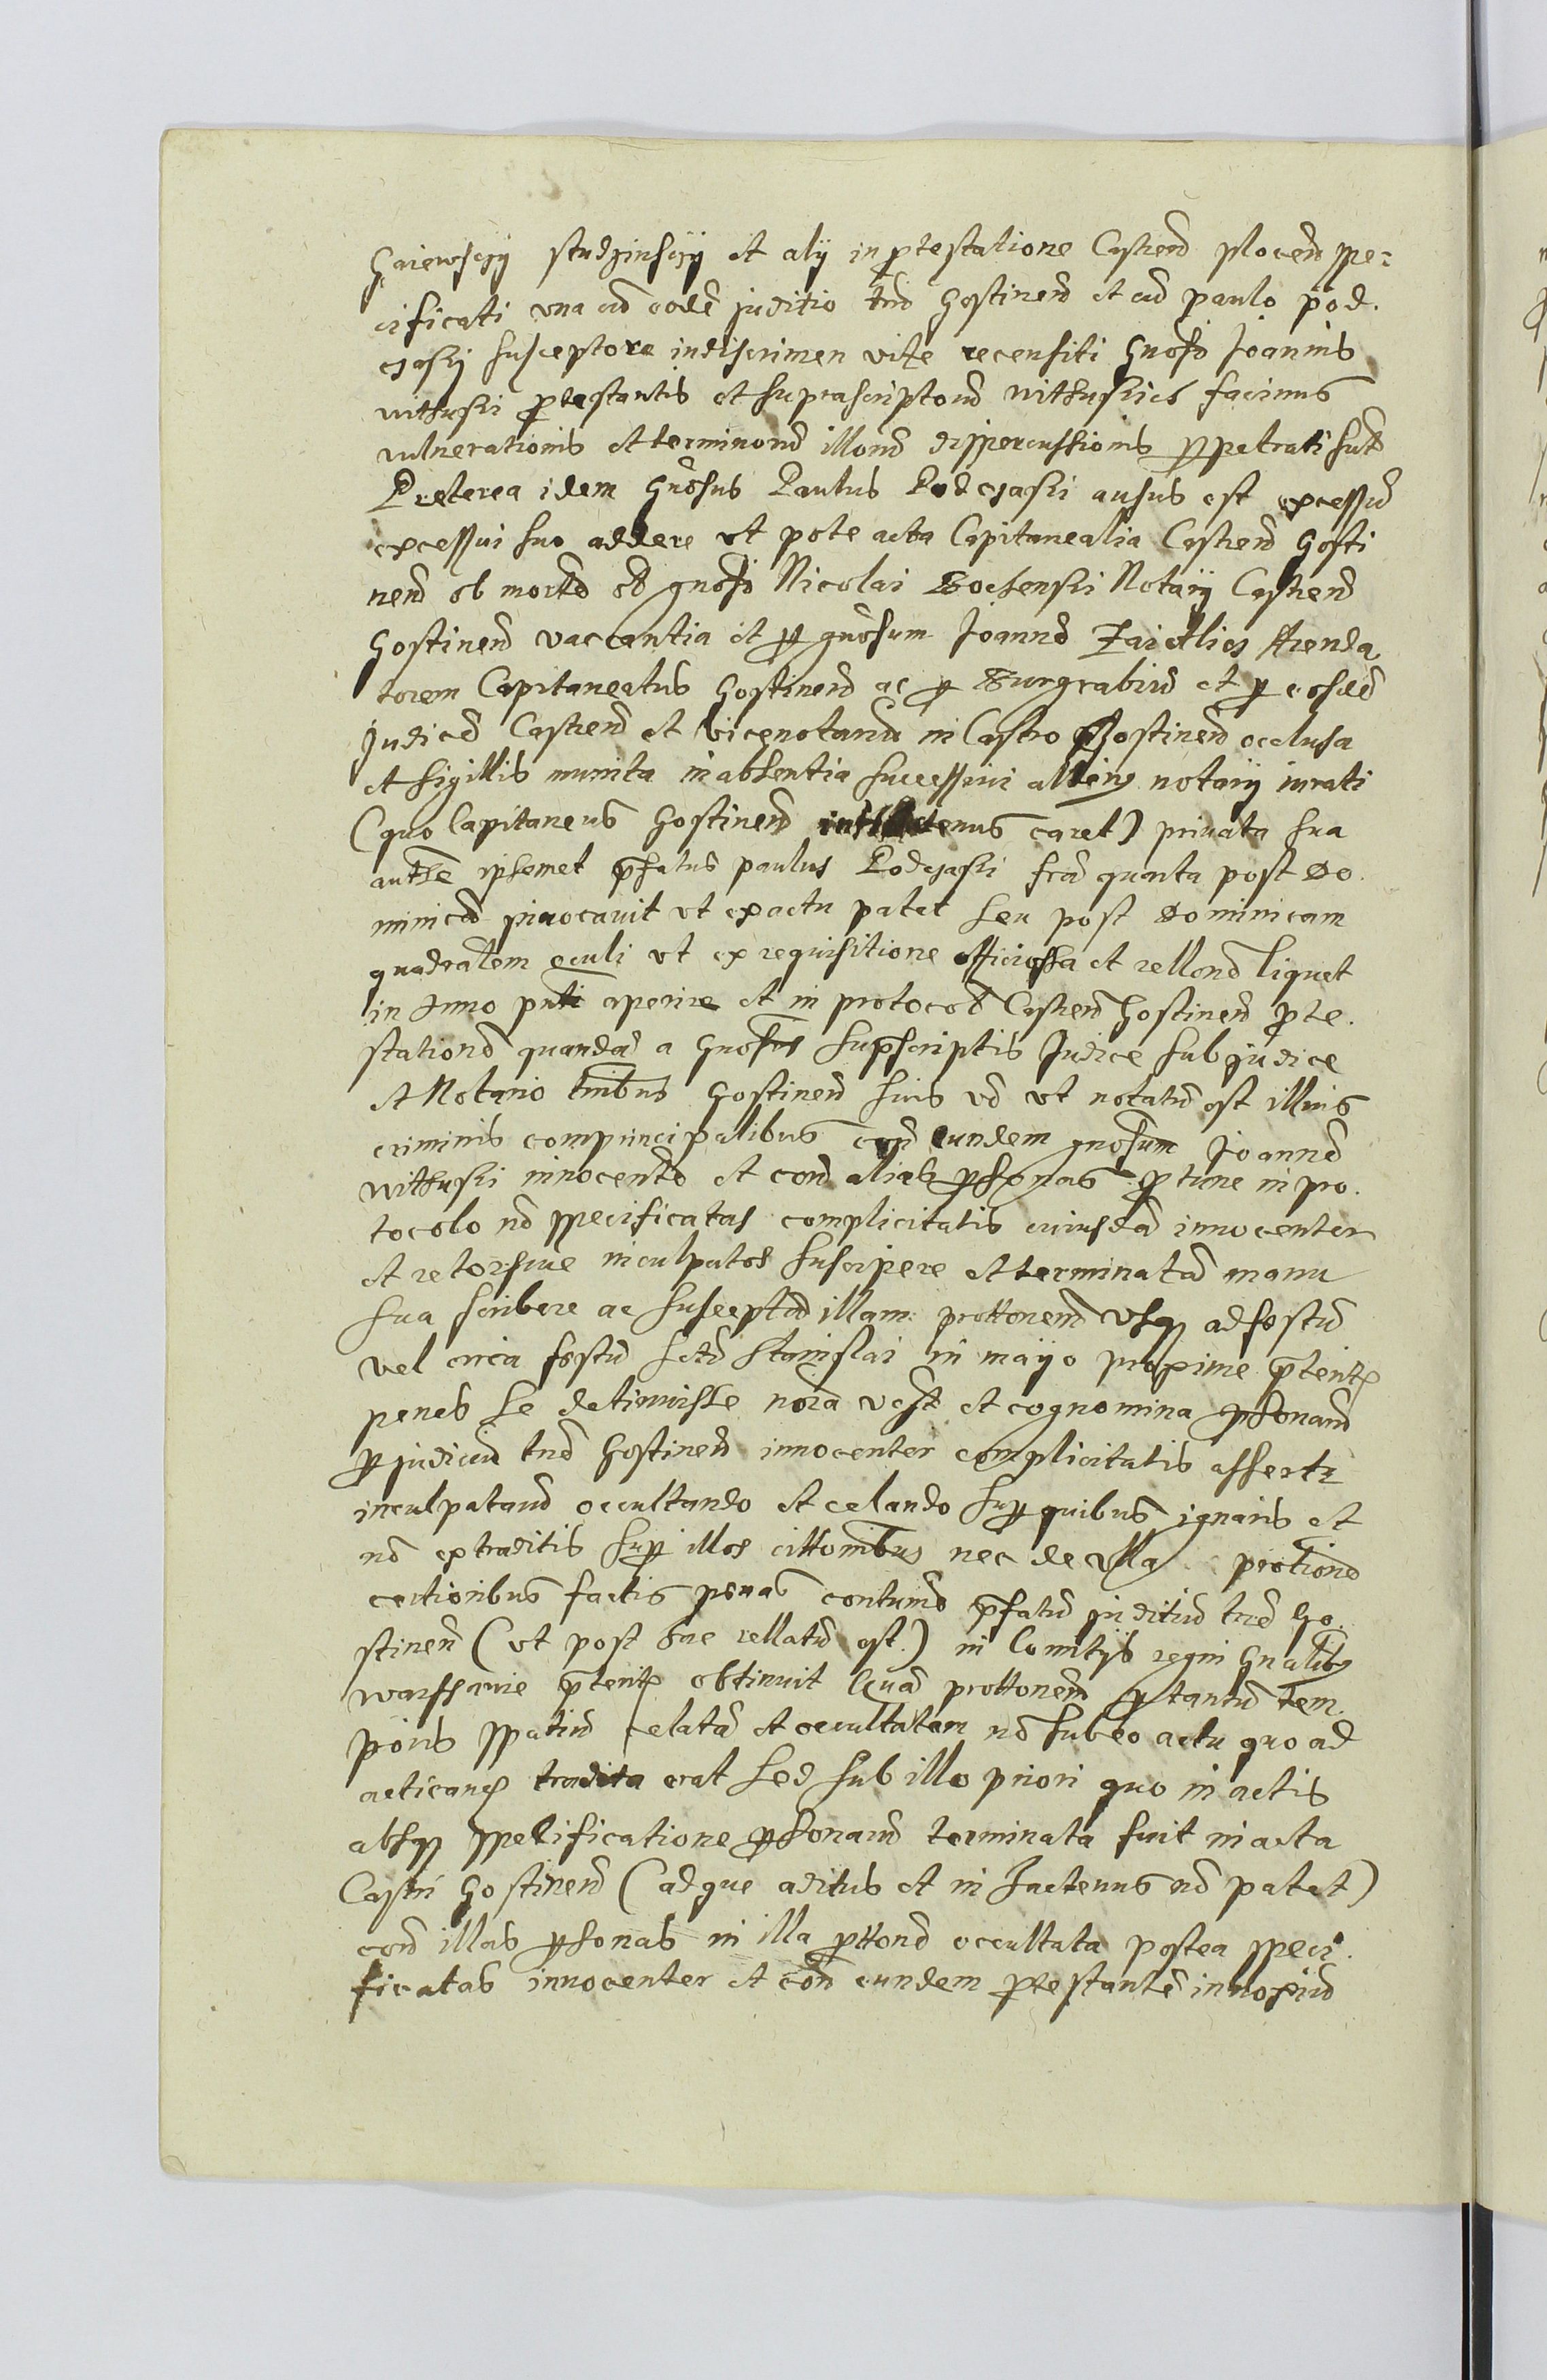 Gaiewsczy Studzinsczy et alij in protestatione Castren Plocen spe-
cificati vna cum eodem juditio trn Gostinen et cum Paulo Pod.
czaskj susceptore in discrimen vite recensiti Gnosi Joannis
Withuski protestantis et suprascriptorum Withuskich facinus
vulnerationis et terminorum illorum dispercussionis perpetrati sunt
Preterea idem Gnosus Paulus Podczaski ausus est excessum
excessui suo addere vt pote acta Capitanealia Castren Gosti
nen ob mortem od gnosi Nicolai Sochenski Notarij Castren
Gostinen vaccantia et per gnosum Joannem Arenda
torem Capitaneatus Gostinen ac per Burgrabium et per eosdem
Judicem Castren et vicenotarium in Castro Gostinen occlusa
et sigillis munita in absentia successiui alterius notarij iurati
(quo Capitaneus Gostinen caret) priuata sua
authte ipsemet prefatus Paulus Podczaski fria quarta post Do.
minicam inuocauit vt ex actu patet seu post Dominicam
quadralem oculi vt ex requisitione officiossa et rellone liquet
in Anno pnti aperire et in protocol Castren Gostinen prote.
stationem quandam a Gnosis suprascriptis Judice subjudice
et Notario trnibus Gostinen suis vd vt notatum est illius
criminis comprincipalibus con eundem gnosum Joannem
Withuski innocentem et con alias personas pro tunc in pro.
tocolo non specificatas complicitatis cuiusdam innocenter
et retorsiue inculpatos suscipere et terminatam manu
sua scribere ac susceptam illam prottonem vsque ad festum
vel circa festum Scti Stanislai in mayo proxime preterit
penes se detinuisse noia vero et cognomina personarum
per judicium trn Gostinen innocenter complicitatis asserte
inculpatarum occultando et celando super quibus ignaris et
non extraditis super illos cittonibus nec de vlla prottione
certioribus factis penas contumo prefatum juditium trn Go
stinen (vt post sue rellatum est) in Comitijs regni Gnalibus
Warssauie preterit obtinuit Quam prottonem per tantum tem.
poris spatium celatam et occultatam non sub eo actu quo ad
acticand tradita erat sed sub illo priori quo in actis
absque specificatione personarum terminata fuit in acta
Castri Gostinen (ad que aditus et in hactenus non patet)
con illas personas in illa prottone occultata postea speci.
ficatas innocenter et con eundem protestantem innoxium